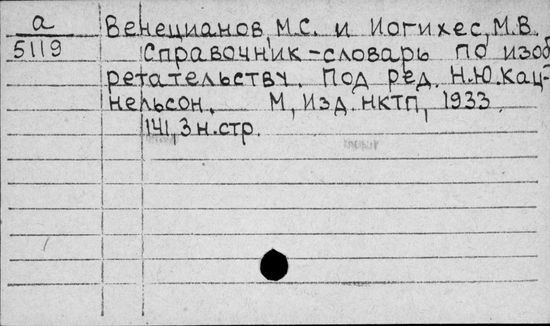 а Венецианов, М.С. и Иогихес, М.В.
5119 Справочник-словарь по изоб
ретательству. Под ред. Н.Ю.Кац-
нельсон. М, Изд. НКТП, 1933.
141, 3 н.стр.